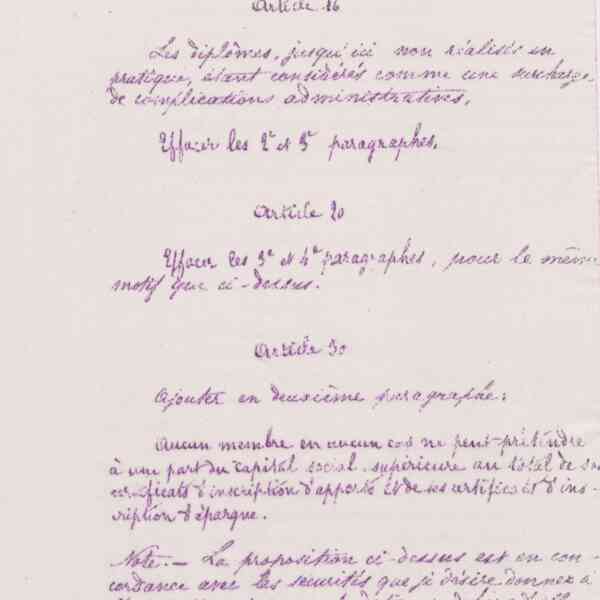 Article 16
Les diplômes, jusqu'ici non réalisés en
pratique, étant considérés comme une surcharge
de complications administratives.
Effacer les 2e et 3e paragraphes.
Article 20
Effacer les 3e et 4e paragraphes, pour le même
motif que ci-dessus.
Article 30
Ajouter en deuxième paragraphe:
Aucun membre en aucun cas ne peut prétendre
à une part du capital social supérieure au total de
certificats d'inscription d'apports et de ses certificats d'ins-
cription d'épargne.
Note.- La proposition ci-dessus est en con-
cordance avec les sécurités que je désire donner à